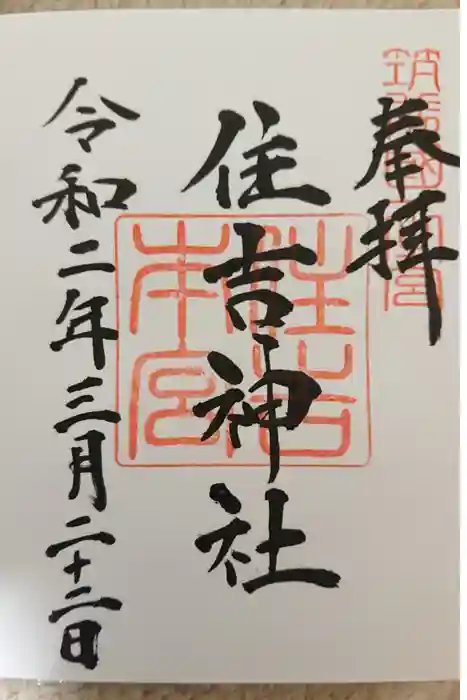 筑前國一宮
奉拝
住吉神社
住吉本宮
令和二年三月二十二日